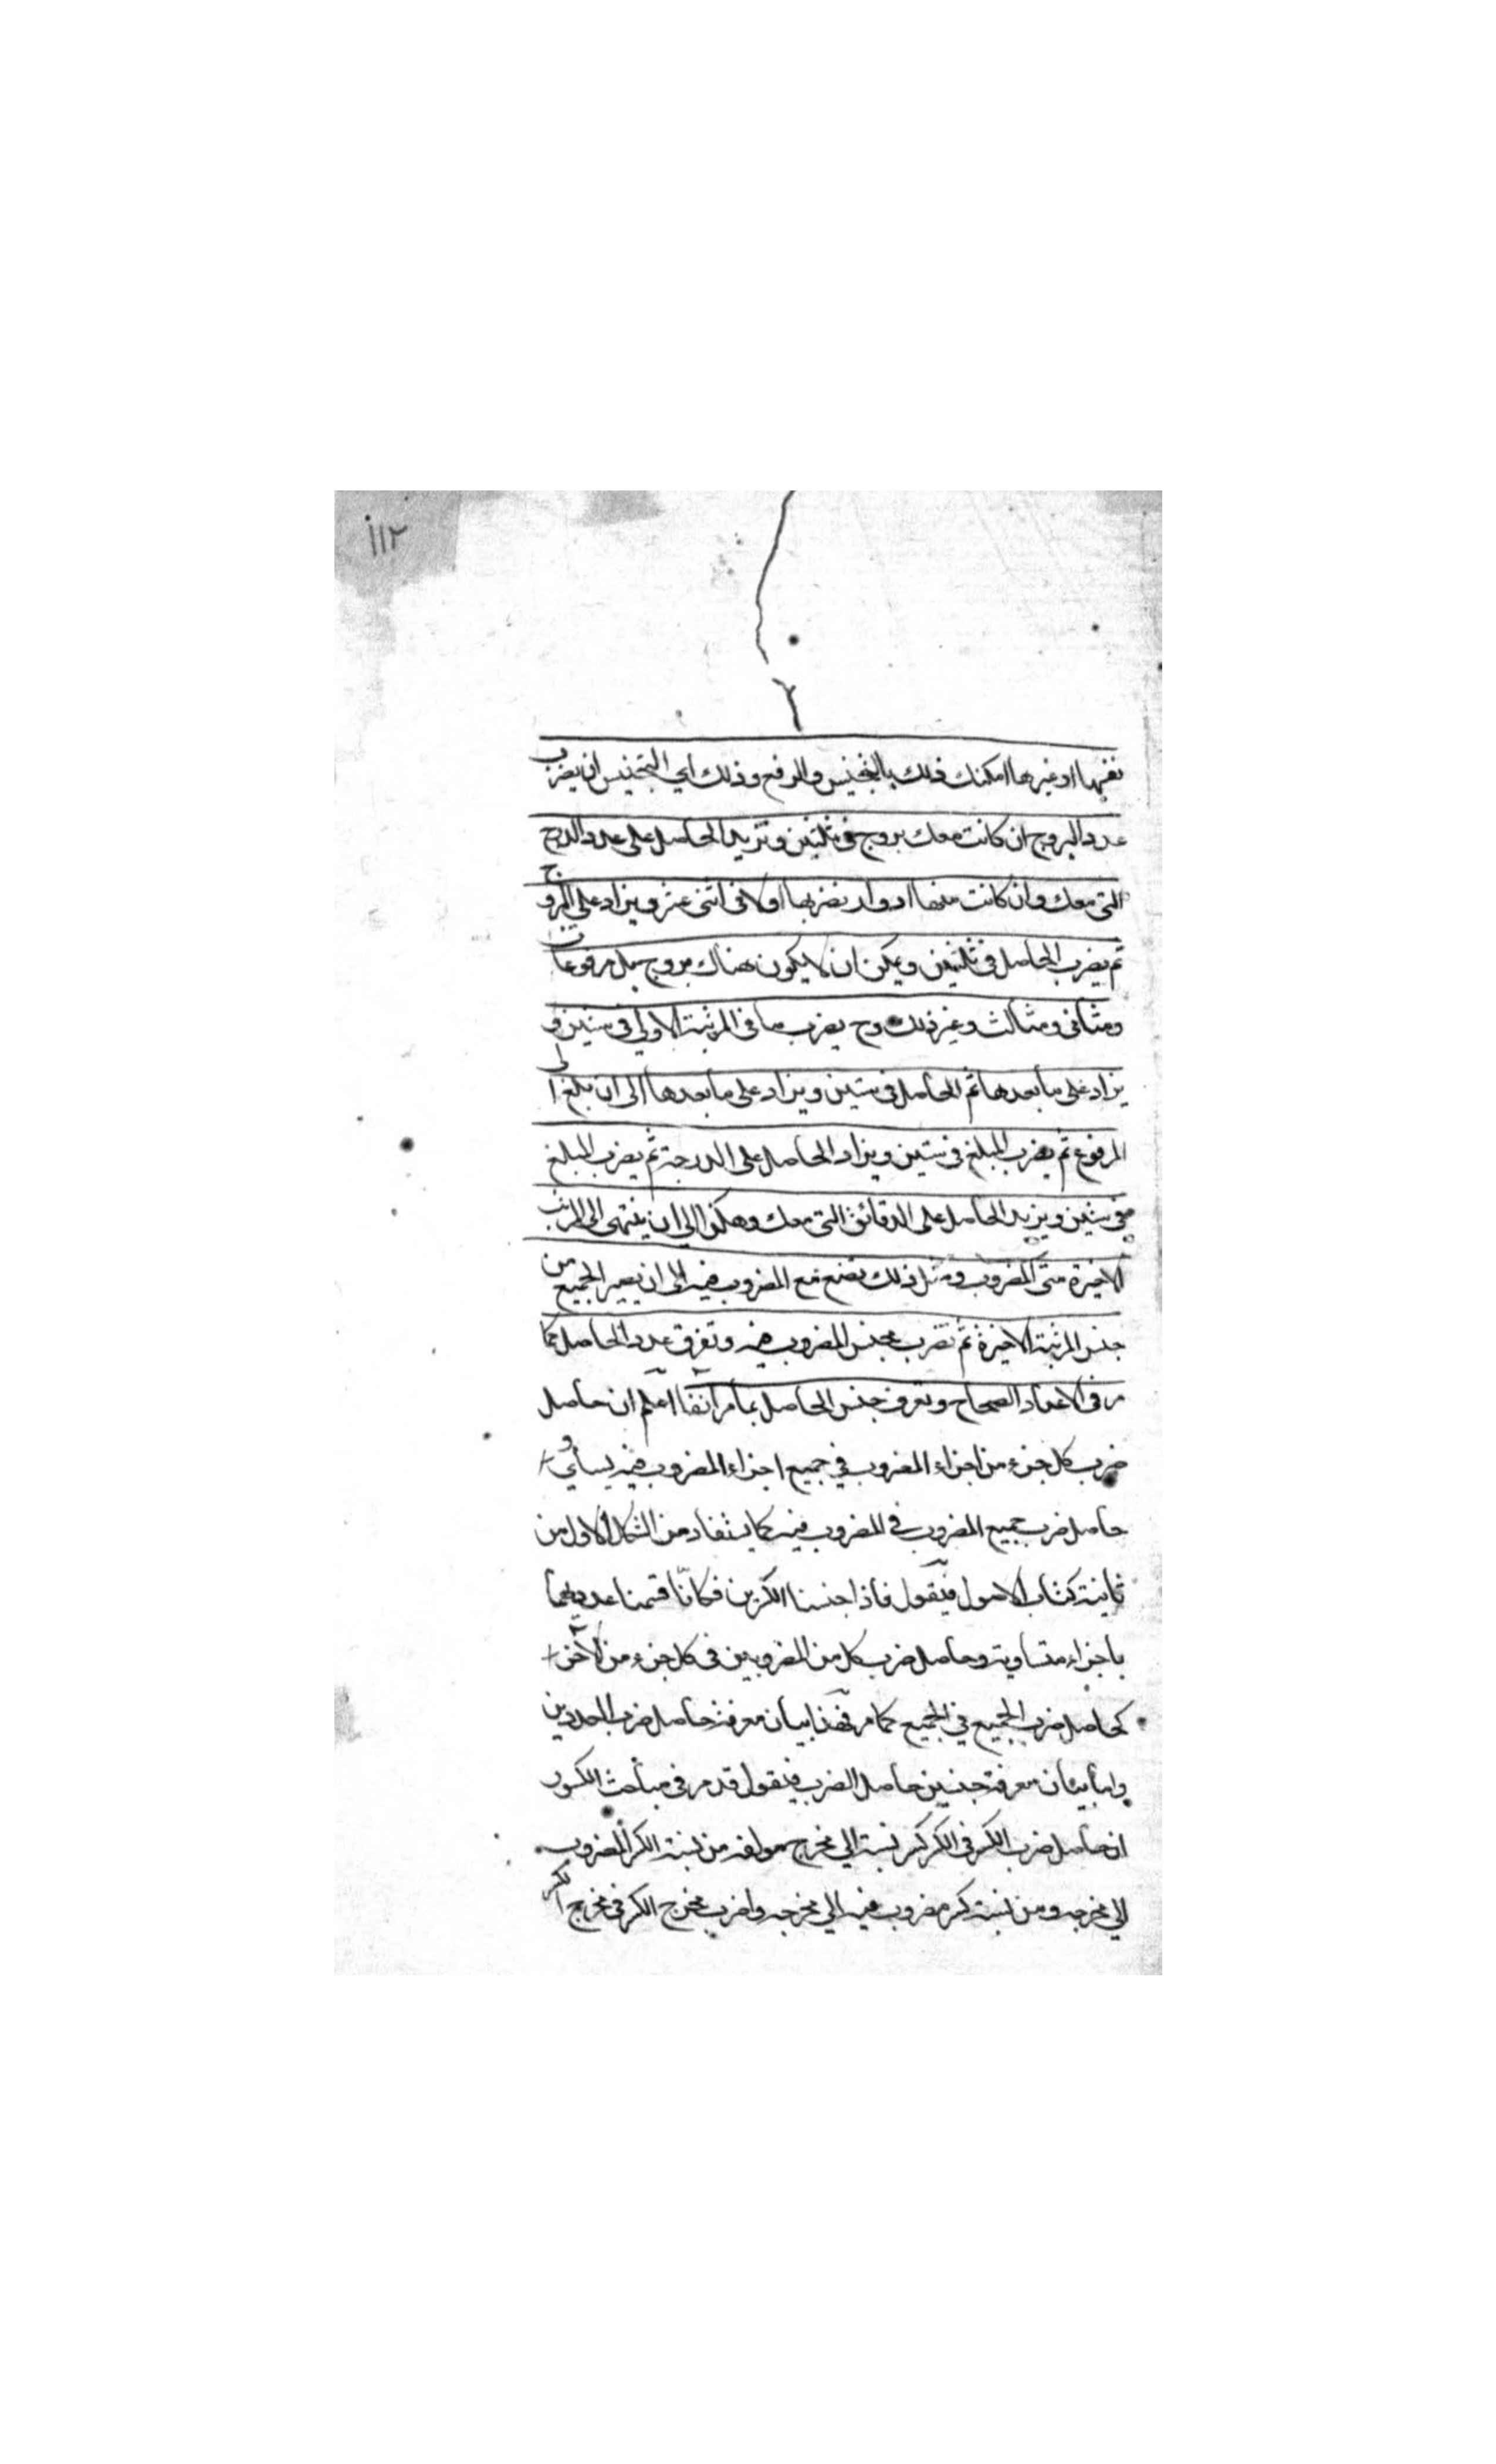 ١١٢
نفيها او غيرها امكنك ذلك بالتجنيس والرفع وذلك اي التجنيس ان يضرب
عدد البروج ان كانت معك بروج في ثلثين وتزيد الحاصل على عدد الدرج
التى معك وان كانت معها ادوار نضربها اولا فى اثنى عشر ويزاد على البروج
ثم يضرب الحاصل فى ثلثين ويمكن ان لا يكون هناك بروج بل مرفوعات
ومثانى ومثالث وغير ذلك وح يضرب ما فى المرتبة الاولى فى ستين و
يزاد على ما بعدها ثم الحاصل فى ستين ويزاد على ما بعدها الى ان بلغ الى
المرفوع ثم يضرب المبلغ فى ستين ويزاد الحاصل على الدرجة ثم يضرب المبلغ
فى ستين ويزيد الحاصل على الدقائق التى معك وهكذا الى ان ينتهى الى المراتب
الاخيرة متى المضروب ومثل ذلك تصنع مع المضروب فيه الى ان يصير الجميع من
جنس المرتبة الاخيرة ثم تضرب مجنس المضروب فيه وتعرف عدد الحاصل كما
مر فى الاعداد الصحاح وتعرف جنس الحاصل بما مر آنفا اعلم ان حاصل
ضرب كل جزء من اجزاء المضروب في جميع اجزاء المضروب فيه يساوي
حاصل ضرب جميع المضروب في المضروب فيه كما يستفاد من الشكل الاول من
ثانية كتاب الاصول فنقول فاذا جنسنا الكسرين فكانّا قسمنا عدديهما
باجزاء متساوية وحاصل ضرب كل من المضروبين فى كل جزء من الاخر
كحاصل ضرب الجميع في الجميع كما مر فهذا بيان معرفة حاصل ضرب العددين
واما بيان معرفة جنسين حاصل الضرب فنقول قد مر فى مباحث الكسور
ان حاصل ضرب الكسر فى الكسر كسر نسبته الي مخرج مولفة من نسبة الكسر المضروب
الي مخرجه ومن نسبة كسر مضروب فيه الي مخرجه واضرب مخرج الكسر فى مخرج الكسر